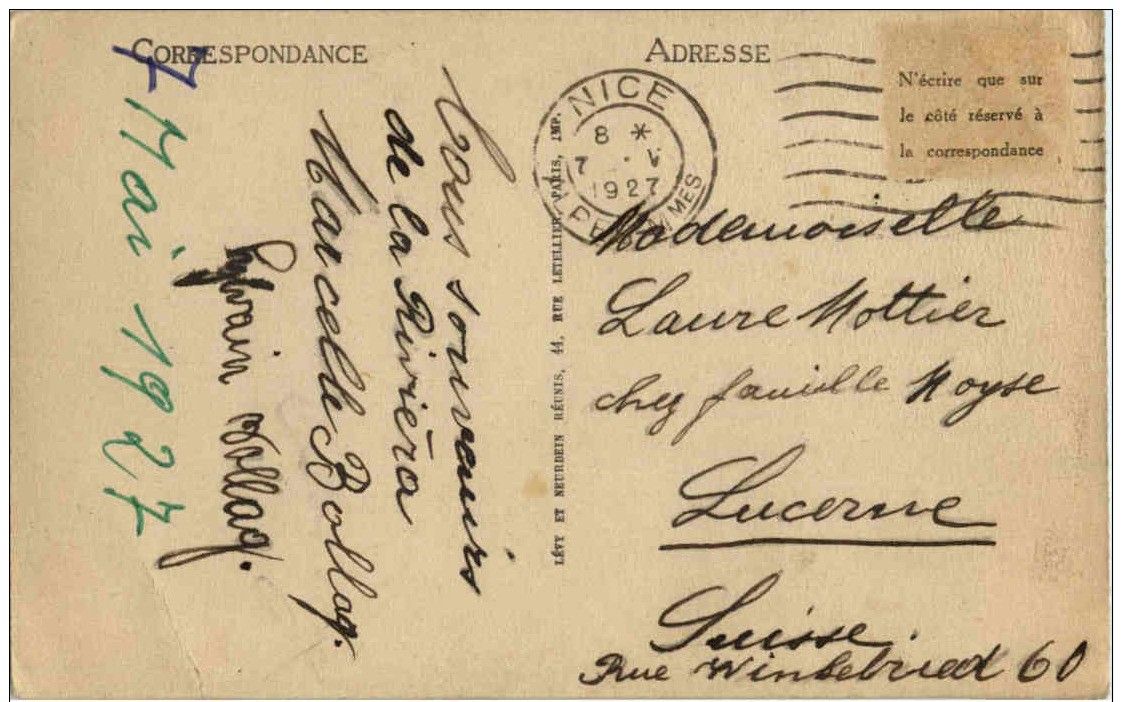 CORRESPONDANCE
7 Mai 1927
Bons souvenirs
de la Riviéra
Marcelle Bollag.
Sylvain Bollag.
LÉVY ET NEURDEIN RÉUNIS, 44, RUE LETELLIER, PARIS, IMP.
ADRESSE
NICE
8 *
7 . V
1927
N'écrire que sur
le côté réservé à
la correspondance
Mademoiselle
Laure Mottier
chez famille Moyse
Lucerne
Suisse.
Rue 60